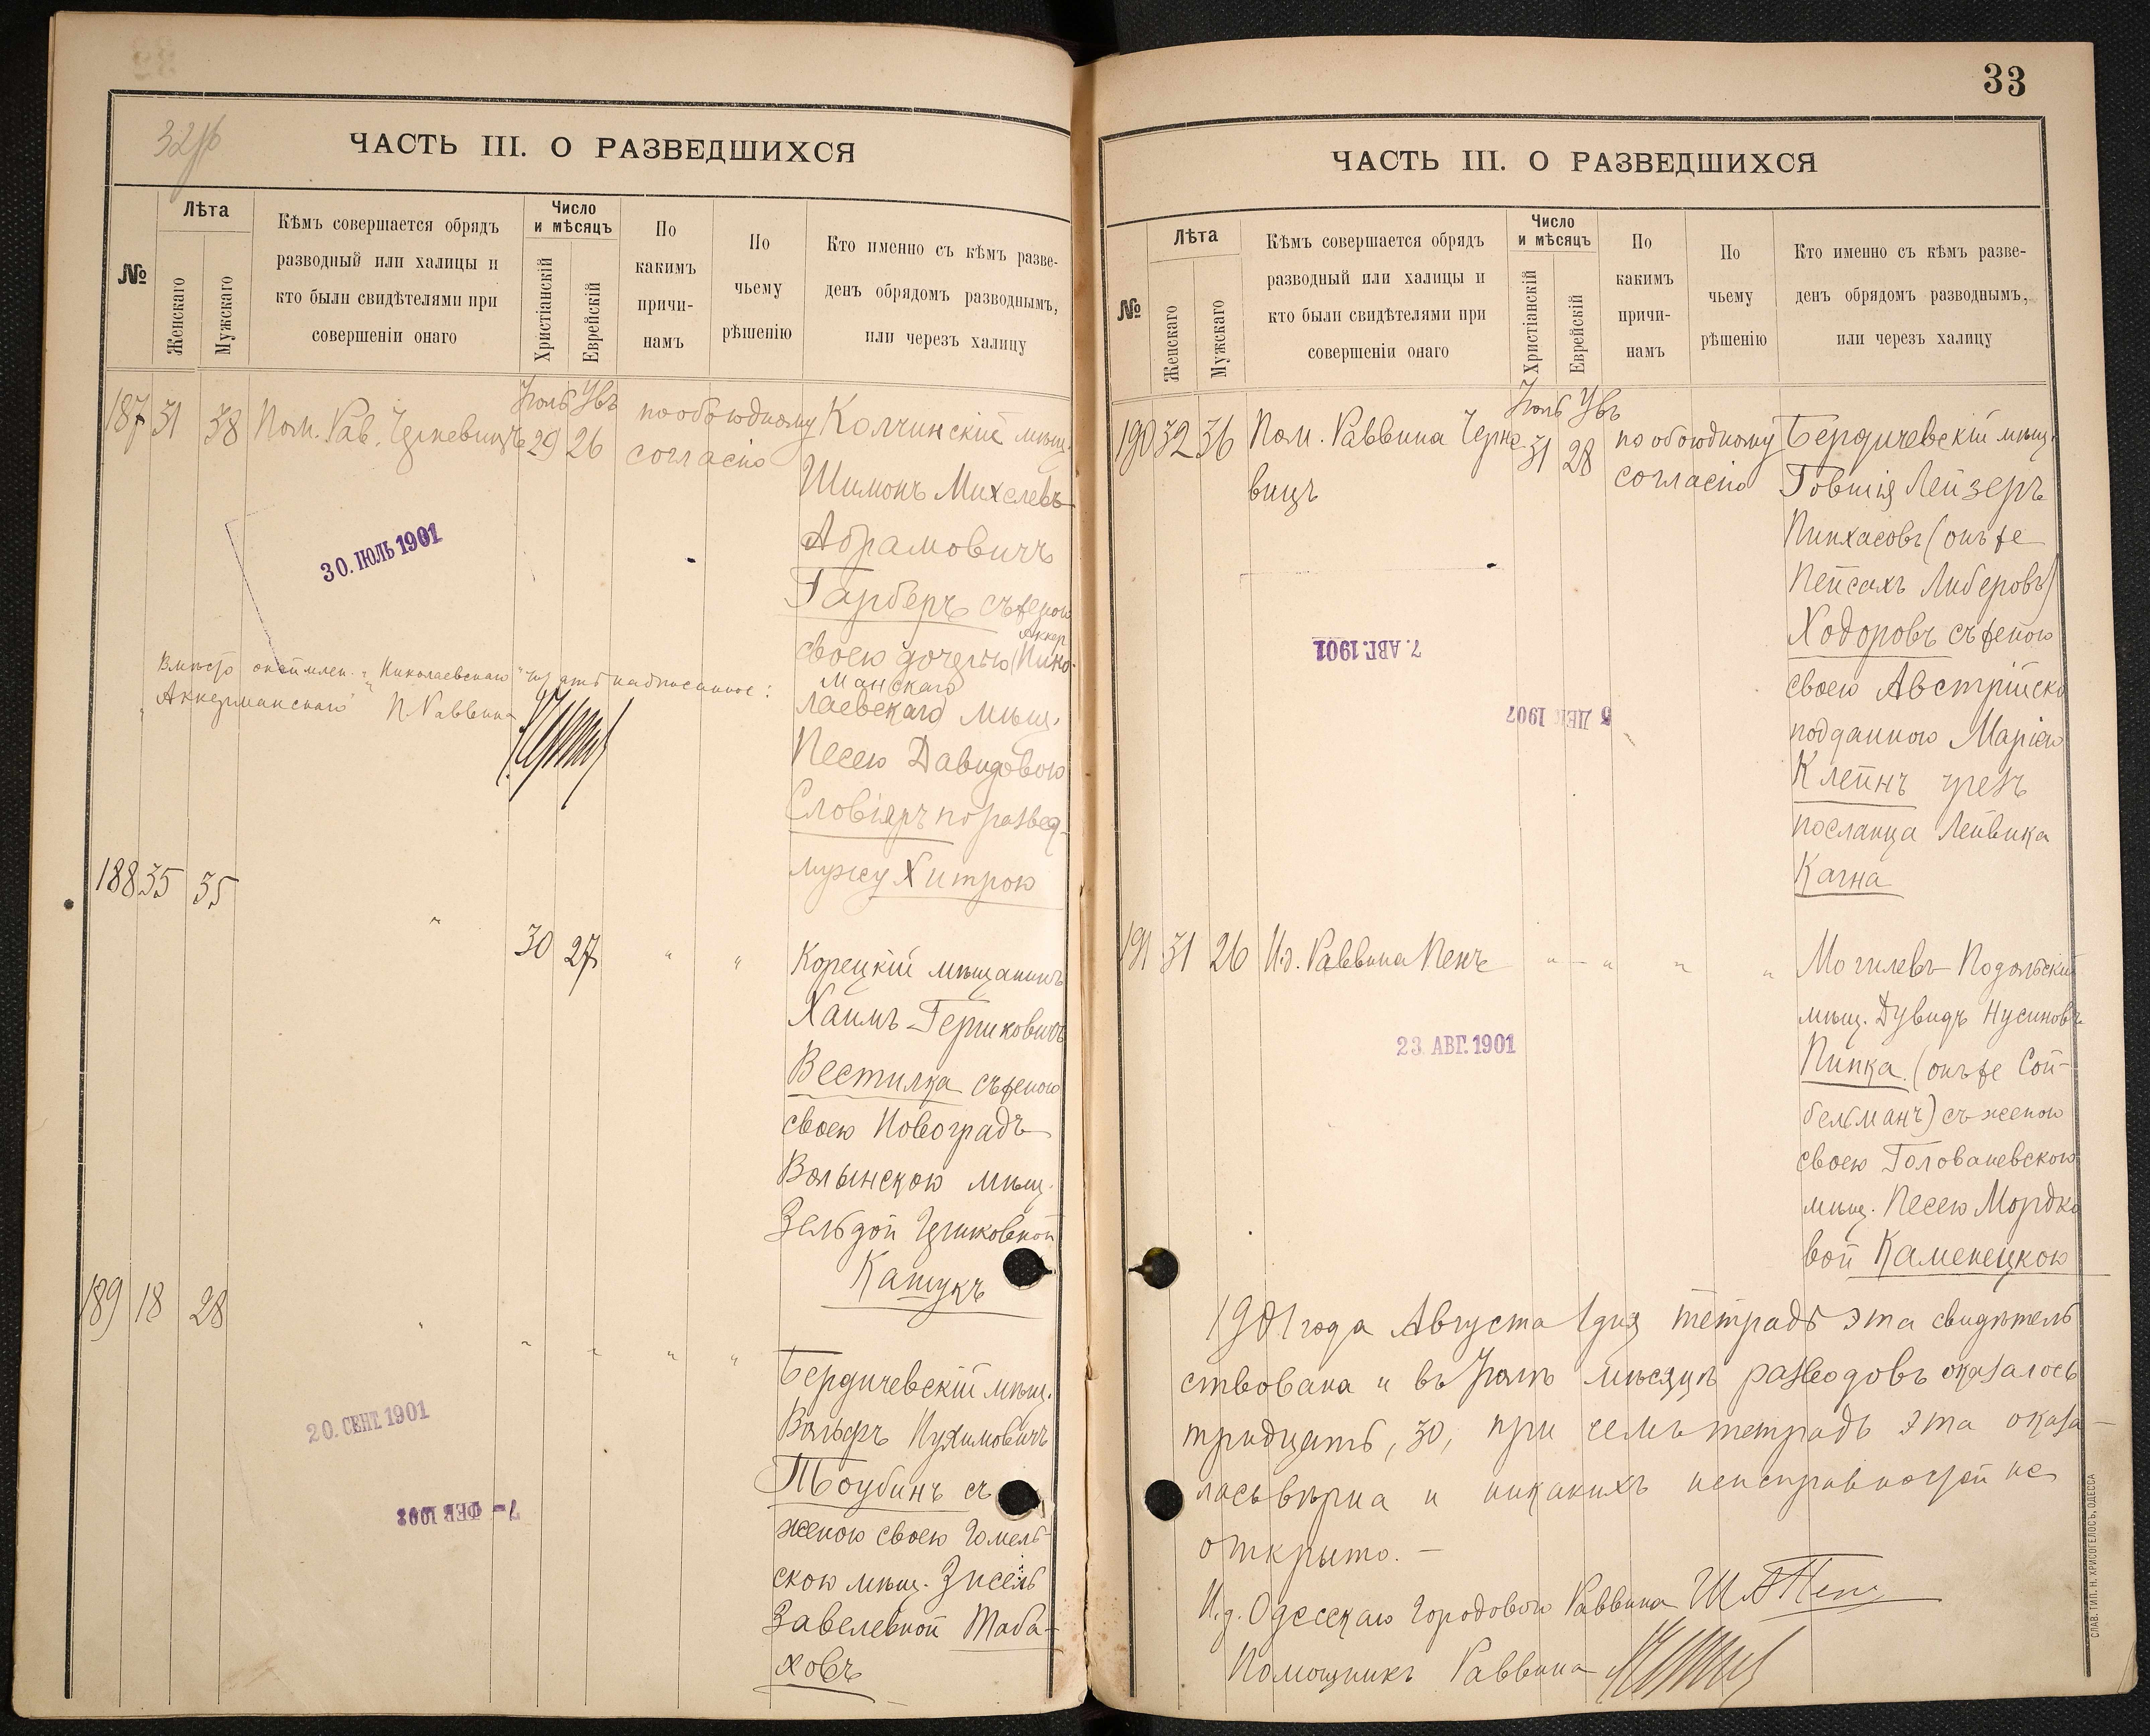 32 об
ЧАСТЬ III. О РАЗВЕДШИХСЯ
№
Лѣта
Женскаго
Мужскаго
Кѣмъ совершается обрядъ
разводный или халицы и
кто были свидѣтелями при
совершеніи онаго
Число
и мѣсяцъ
Христіанскій
Еврейскій
По
какимъ
причи-
намъ
По
чьему
рѣшенію
Кто именно съ кѣмъ разве-
денъ обрядомъ разводнымъ,
или черезъ халицу
Іюль Увъ
187 31 38 Пом. Рав. 29 26 по обоюдному Колчинскій мѣщ.
согласію
Шимонъ Михелевъ
Абрамовичъ
Гарберъ съ женою
30. ІЮЛЬ 1901
Аккер
своею дочерью (Нико-
манскаго
лаевскаго мѣщ.
Вмѣсто Николаевскаго читать надписанное:
Аккерманскаго П. Раввина
Песею Давидовою
Словіяръ по развед.
мужу Хитрою
188 35 35 " 30 27 " " Корецкій мѣщанинъ
Хаимъ Гершковичъ
Вестилка съ женою
своею Новоградъ
Волынскою мѣщ.
Зельдой Гершковной
Кащукъ
189 18 28 " " " " " Бердичевскій мѣщ.
Вольфъ Нухимовичъ
Тоубинъ съ
женою своею Гомель-
скою мѣщ. Зисель
Завелевной Таба-
ховъ
20. СЕНТ. 1901
7- ФЕВ 1903
33
ЧАСТЬ III. О РАЗВЕДШИХСЯ
№
Лѣта
Женскаго
Мужскаго
Кѣмъ совершается обрядъ
разводный или халицы и
кто были свидѣтелями при
совершеніи онаго
Число
и мѣсяцъ
Христіанскій
Еврейскій
По
какимъ
причи-
намъ
По
чьему
рѣшенію
Кто именно съ кѣмъ разве-
денъ обрядомъ разводнымъ,
или черезъ халицу
Іюль Увъ
190 32 36 Пом. Раввина Черне 31 28 по обоюдному Бердичевскій мѣщ.
вицъ согласію Говшія Лейзеръ
Пинхасовъ (онъ же
Пейсахъ Либеровъ)
Ходоровъ съ женою
7. АВГ. 1901
своею Австрійско
5 ДЕК 1907
подданною Маріею
Клейнъ чрезъ
посланца Лейвика
Кагна
191 31 26 И.д. Раввина Пенъ " - " " " Могилевъ-Подольскій
мѣщ. Дувидъ Нусиновъ
23. АВГ. 1901
Пинка (онъ же Сой-
бельманъ) съ женою
своею Голованевскою
мѣщ. Песею Мордко
вой Каменецкою
1901 года Августа 1 дня тетрадь эта свидѣтель
ствована и въ Іюлѣ мѣсяцѣ разводовъ оказалось
тридцать, 30, при семъ тетрадь эта оказа-
лась вѣрна и никакихъ неисправностей не
открыто. —
И.д. Одесскаго Городового Раввина Ш. Пенъ
Помощникъ Раввина
СЛАВ. ТИП. Н. ХРИСОГЕЛОСЪ, ОДЕССА